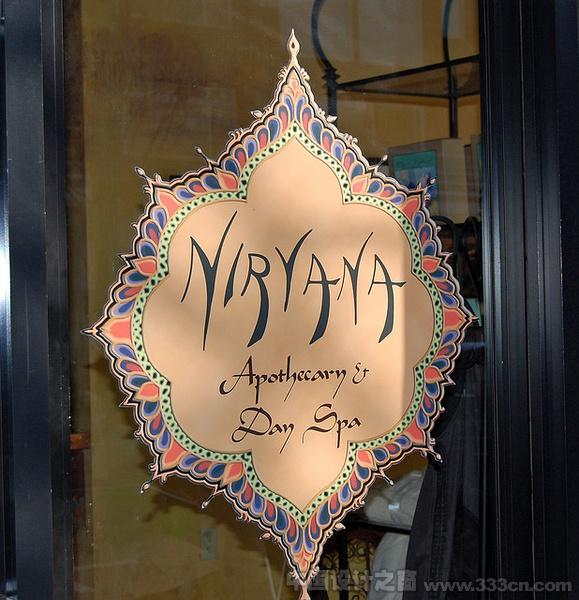 NIRVANA
Apothecary &
Day Spa
中国设计之窗 www.333cn.com